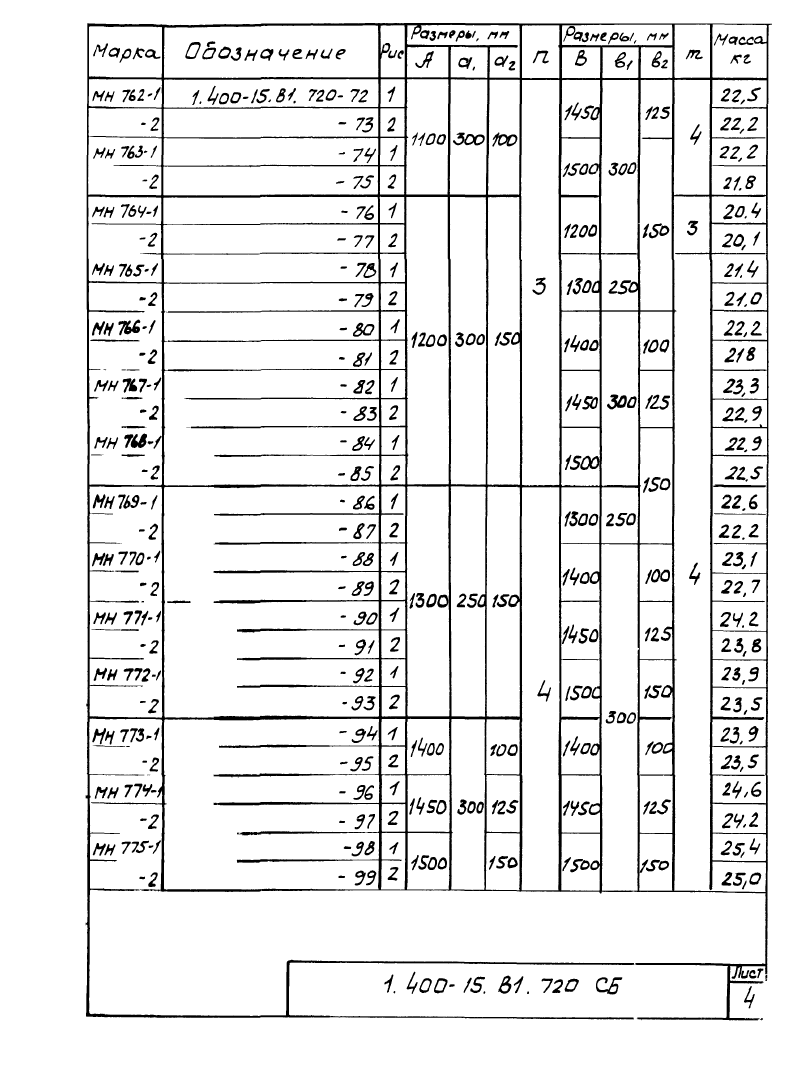 Марка Обозначение Рис Размеры, мм п Размеры, мм m Масса кг
А а₁ а₂ В в₁ в₂
МН 762-1 1.400-15.В1. 720-72 1 1100 300 100 3 1450 300 125 4 22,5
-2 - 73 2 22,2
МН 763-1 - 74 1 1500 150 22,2
-2 - 75 2 21.8
МН 764-1 - 76 1 1200 300 150 1200 3 20.4
-2 - 77 2 20,1
МН 765-1 - 78 1 1300 250 4 21.4
-2 - 79 2 21.0
МН 766-1 - 80 1 1400 300 100 22,2
-2 - 81 2 218
МН 767-1 - 82 1 1450 125 23,3
-2 - 83 2 22,9
МН 768-1 - 84 1 1500 150 22,9
-2 - 85 2 22,5
МН 769-1 - 86 1 1300 250 150 4 1300 250 22,6
-2 - 87 2 22.2
МН 770-1 - 88 1 1400 300 100 23,1
-2 - 89 2 22,7
МН 771-1 - 90 1 1450 125 24.2
-2 - 91 2 23,8
МН 772-1 - 92 1 1500 150 23,9
-2 - 93 2 23,5
МН 773-1 - 94 1 1400 300 100 1400 100 23.9
-2 - 95 2 23,5
МН 774-1 - 96 1 1450 125 1450 125 24,6
-2 - 97 2 24.2
МН 775-1 - 98 1 1500 150 1500 150 25,4
-2 - 99 2 25,0
1. 400-15. В1. 720 СБ
Лист
4